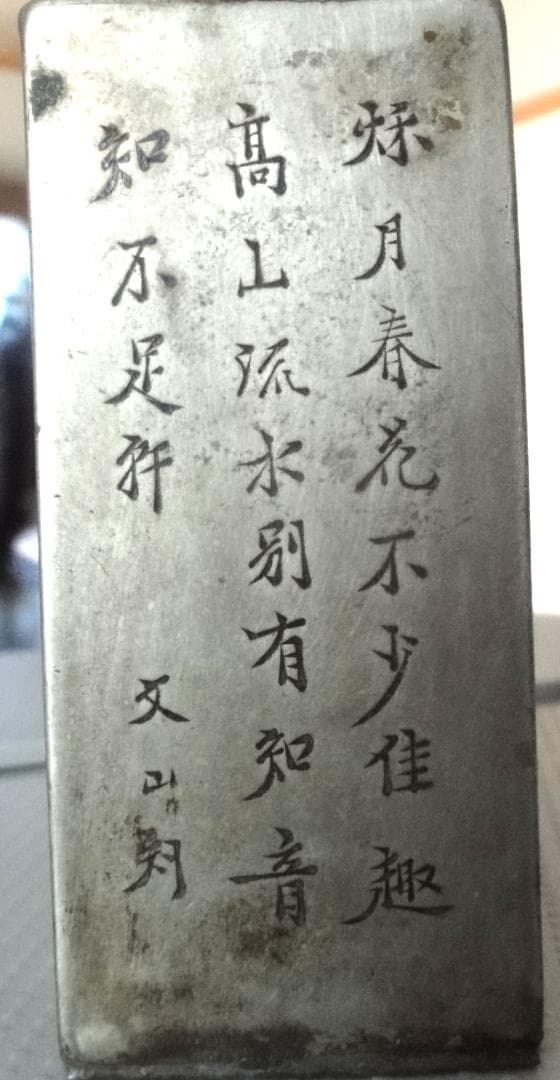 秌月春花不少佳趣
高山流水别有知音
知不足軒
文山